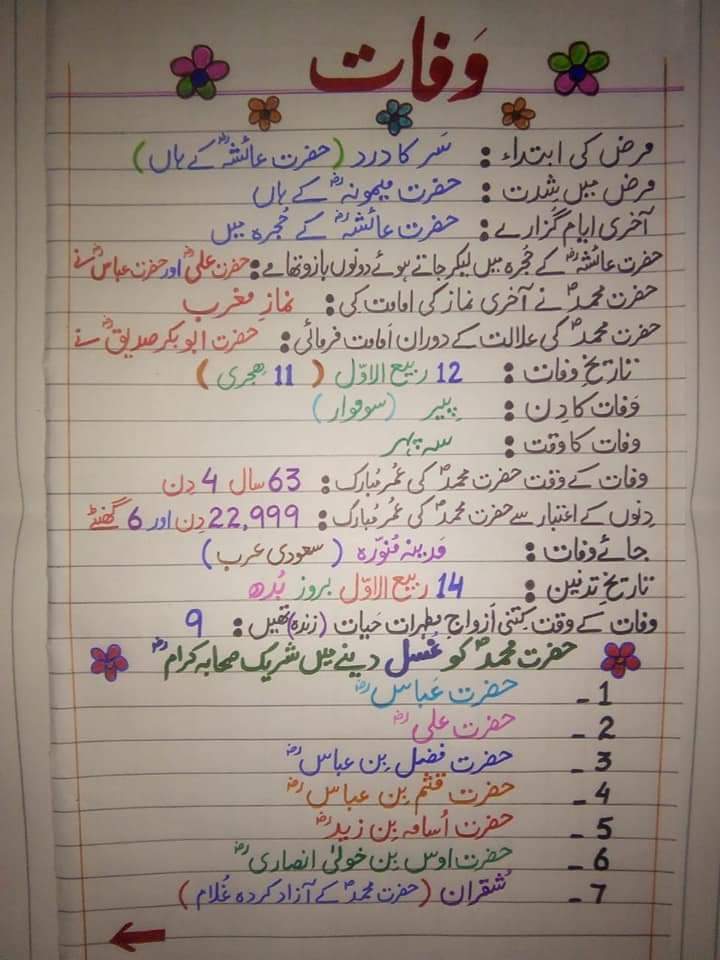 وَفات
مرض کی ابتداء : سَر کا درد (حضرت عائشہؓ کے ہاں)
مرض میں شِدت : حضرت میمونہؓ کے ہاں
آخری ایام گُزارے : حضرت عائشہؓ کے حُجرہ میں
حضرت عائشہؓ کے حُجرہ میں لیکر جاتے ہوئے دونوں بازو تھامے : حضرت علیؓ اور حضرت عباسؓ نے
حضرت محمدؐ نے آخری نماز کی امامت کی : نمازِ مغرب
حضرت محمدؐ کی علالت کے دوران اَمامت فرمائی : حضرت ابوبکر صدیقؓ نے
تاریخِ وفات : 12 ربیع الاوّل (11 ھِجری)
وَفات کا دِن : پِیر (سوموار)
وفات کا وقت : سہ پہر
وفات کے وقت حضرت محمدؐ کی عُمر مُبارک : 63 سال 4 دِن
دِنوں کے اعتبار سے حضرت محمدؐ کی عُمر مُبارک : 22,999 دِن اور 6 گھنٹے
جائے وفات : مَدینہ مُنوّرہ (سعودی عرب)
تاریخِ تدفین : 14 ربیع الاوّل بروز بُدھ
وفات کے وقت کِتنی اَزواجِ مطہرات حَیات (زندہ) تھیں : 9
حضرت محمدؐ کو غُسل دینے میں شریک صحابہ کرامؓ
1- حضرت عَباسؓ
2- حضرت علیؓ
3- حضرت فضل بِن عباسؓ
4- حضرت قثم بِن عباسؓ
5- حضرت اُسامہ بِن زیدؓ
6- حضرت اوس بن خولیٰ انصاریؓ
7- شُقران (حضرت محمدؐ کے آزاد کردہ غُلام)